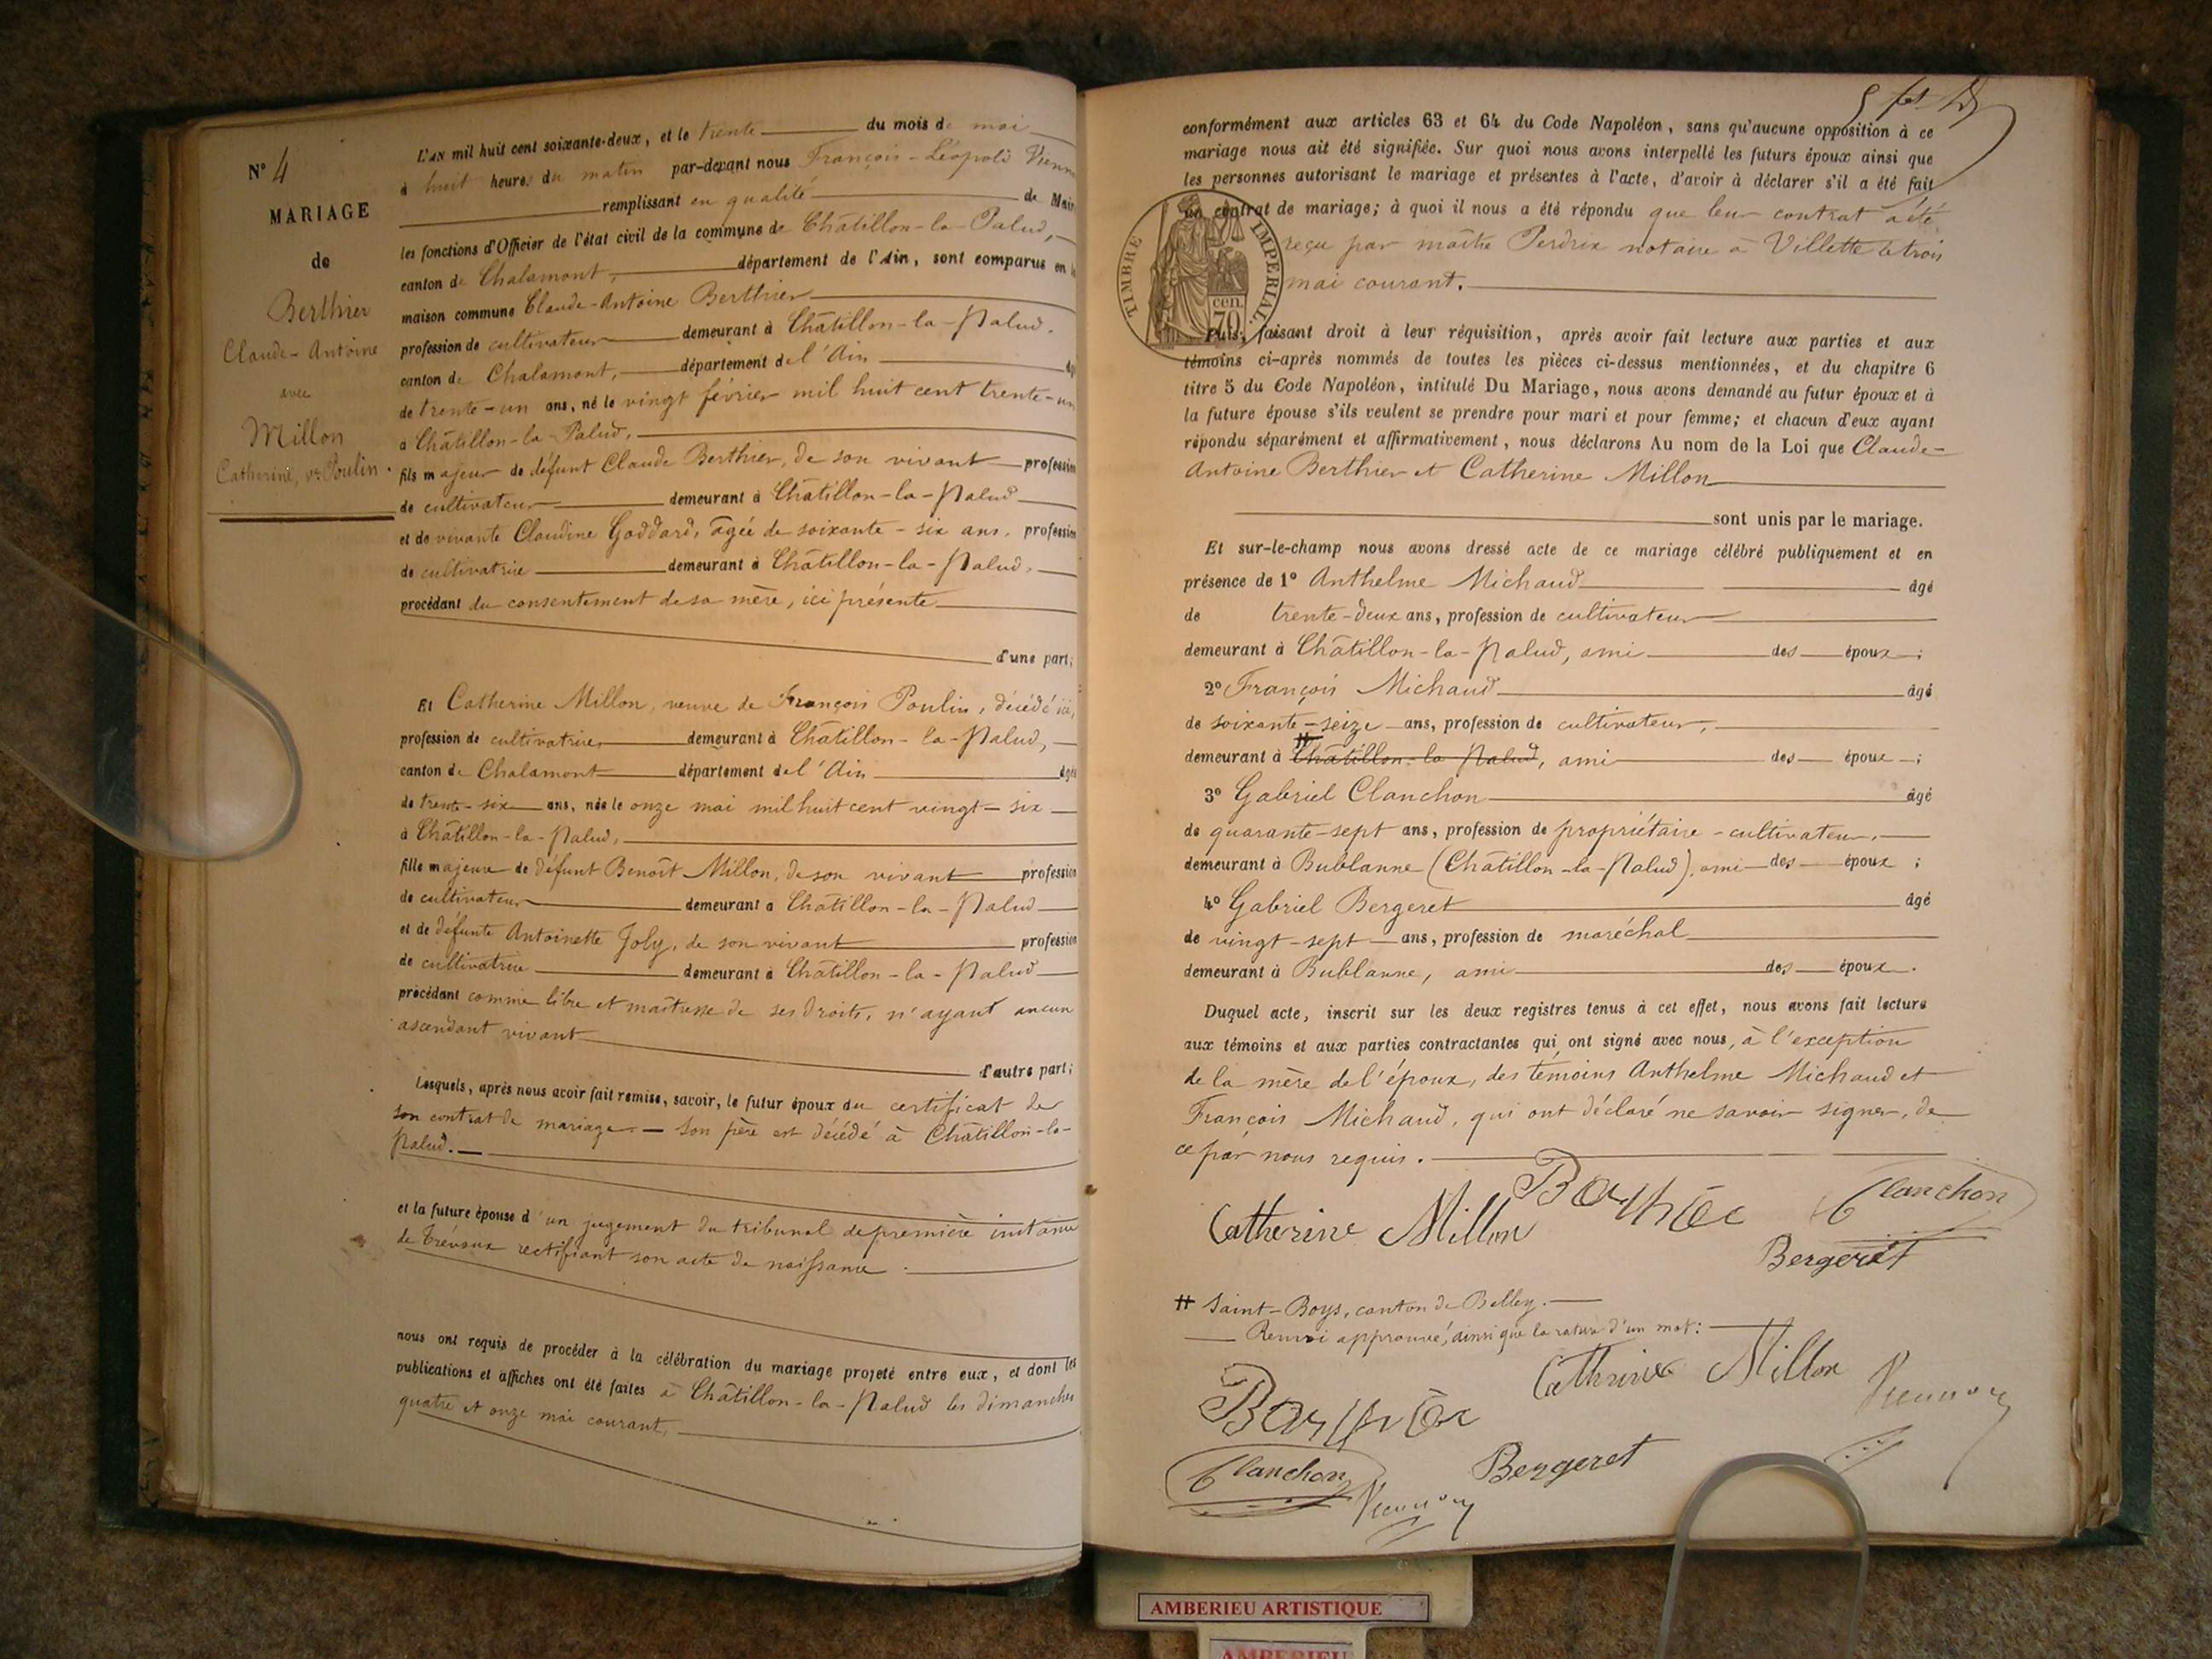 N° 4
MARIAGE
de
Berthier
Claude-Antoine
avec
Millon
Catherine, ve Poulin.
L'an mil huit cent soixante-deux, et le trente du mois de mai
à huit heures du matin par-devant nous François-Léopold
remplissant en qualité de Maire
les fonctions d'Officier de l'état civil de la commune de Châtillon-la-Palud,
canton de Chalamont, département de l'Ain, sont comparus en la
maison commune Claude-Antoine Berthier
profession de cultivateur demeurant à Châtillon-la-Palud.
canton de Chalamont, département de l'Ain
de trente-un ans, né le vingt février mil huit cent trente-un
à Châtillon-la-Palud,
fils majeur de défunt Claude Berthier, de son vivant profession
de cultivateur demeurant à Châtillon-la-Palud
et de vivante Claudine Goddard, âgée de soixante-six ans, profession
de cultivatrice demeurant à Châtillon-la-Palud,
procédant du consentement de sa mère, ici présente
d'une part;
Et Catherine Millon, veuve de François Poulin, décédé ici,
profession de cultivatrice demeurant à Châtillon-la-Palud,
canton de Chalamont département de l'Ain âgée
de trente-six ans, née le onze mai mil huit cent vingt-six
à Châtillon-la-Palud,
fille majeure de défunt Benoît Millon, de son vivant profession
de cultivateur demeurant à Châtillon-la-Palud
et de défunte Antoinette Joly, de son vivant profession
de cultivatrice demeurant à Châtillon-la-Palud
procédant comme libre et maîtresse de ses droits, n'ayant aucun
ascendant vivant
d'autre part;
Lesquels, après nous avoir fait remise, savoir, le futur époux du certificat de
son contrat de mariage. — Son père est décédé à Châtillon-la-
Palud. —
et la future épouse d'un jugement du tribunal de première instance
de Trévoux rectifiant son acte de naissance.
nous ont requis de procéder à la célébration du mariage projeté entre eux, et dont les
publications et affiches ont été faites à Châtillon-la-Palud les dimanches
quatre et onze mai courant,
conformément aux articles 63 et 64 du Code Napoléon, sans qu'aucune opposition à ce
mariage nous ait été signifiée. Sur quoi nous avons interpellé les futurs époux ainsi que
les personnes autorisant le mariage et présentes à l'acte, d'avoir à déclarer s'il a été fait
un contrat de mariage; à quoi il nous a été répondu que leur contrat a été
reçu par maître Perdrix notaire à Villette le trois
mai courant.
TIMBRE IMPERIAL
cen.
70
Puis, faisant droit à leur réquisition, après avoir fait lecture aux parties et aux
témoins ci-après nommés de toutes les pièces ci-dessus mentionnées, et du chapitre 6
titre 5 du Code Napoléon, intitulé Du Mariage, nous avons demandé au futur époux et à
la future épouse s'ils veulent se prendre pour mari et pour femme; et chacun d'eux ayant
répondu séparément et affirmativement, nous déclarons Au nom de la Loi que Claude-
Antoine Berthier et Catherine Millon
sont unis par le mariage.
Et sur-le-champ nous avons dressé acte de ce mariage célébré publiquement et en
présence de 1° Anthelme Michaud âgé
de trente-deux ans, profession de cultivateur
demeurant à Châtillon-la-Palud, ami des époux;
2° François Michaud âgé
de soixante-seize ans, profession de cultivateur,
demeurant à Châtillon-la-Palud, ami des époux;
3° Gabriel Clanchon âgé
de quarante-sept ans, profession de propriétaire-cultivateur,
demeurant à Bublanne (Châtillon-la-Palud), ami des époux;
4° Gabriel Bergeret âgé
de vingt-sept ans, profession de maréchal
demeurant à Bublanne, ami des époux.
Duquel acte, inscrit sur les deux registres tenus à cet effet, nous avons fait lecture
aux témoins et aux parties contractantes qui ont signé avec nous, à l'exception
de la mère de l'époux, des témoins Anthelme Michaud et
François Michaud, qui ont déclaré ne savoir signer, de
ce par nous requis.
Catherine Millon
Clanchon
Bergeret
# Saint-Boys, canton de Belley. —
Renvoi approuvé, ainsi que la rature d'un mot:
Catherine Millon
Clanchon
Bergeret
AMBERIEU ARTISTIQUE
AMBERIEU